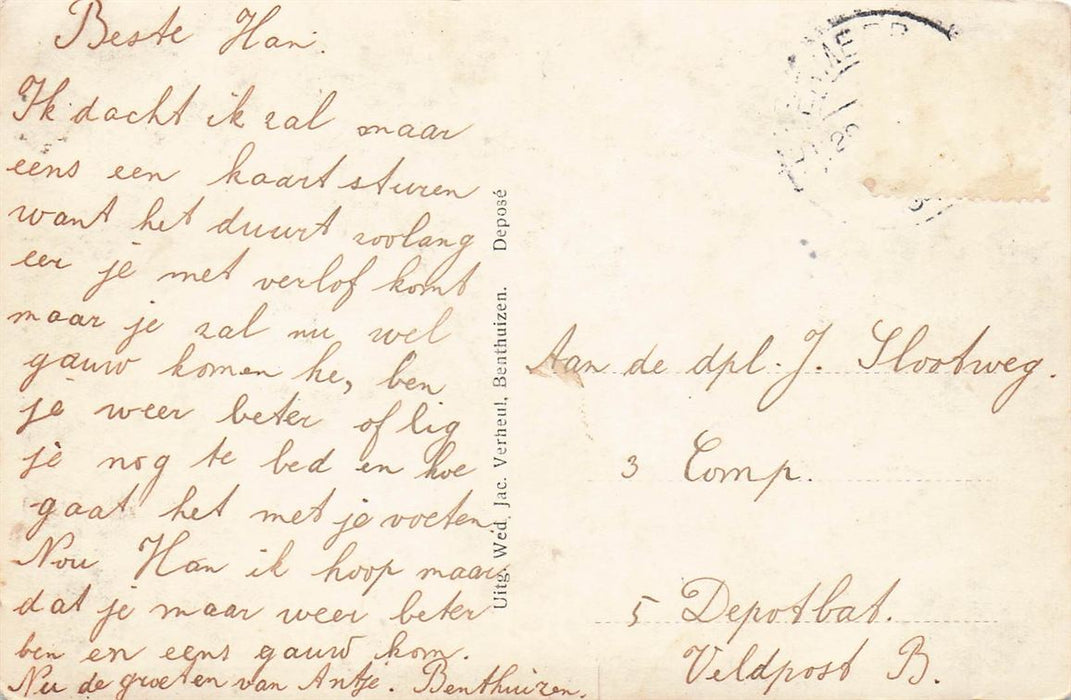 Beste Han.
Ik dacht ik zal maar
eens een kaart sturen
want het duurt zoolang
eer je met verlof komt
maar je zal nu wel
gauw komen he, ben
je weer beter of lig
je nog te bed en hoe
gaat het met je voeten
Nou Han ik hoop maar
dat je maar weer beter
ben en eens gauw kom.
Nu de groeten van Antje. Benthuizen.
Uitg. Wed. Jac. Verheul, Benthuizen. Deposé
Aan de dpl. J. Slootweg.
3 Comp.
5 Depotbat.
Veldpost B.